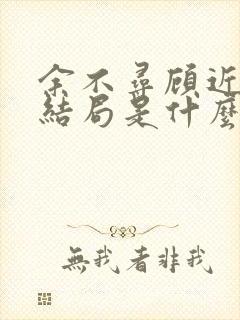 余不尋顧近
結局是什麼
無我者非我